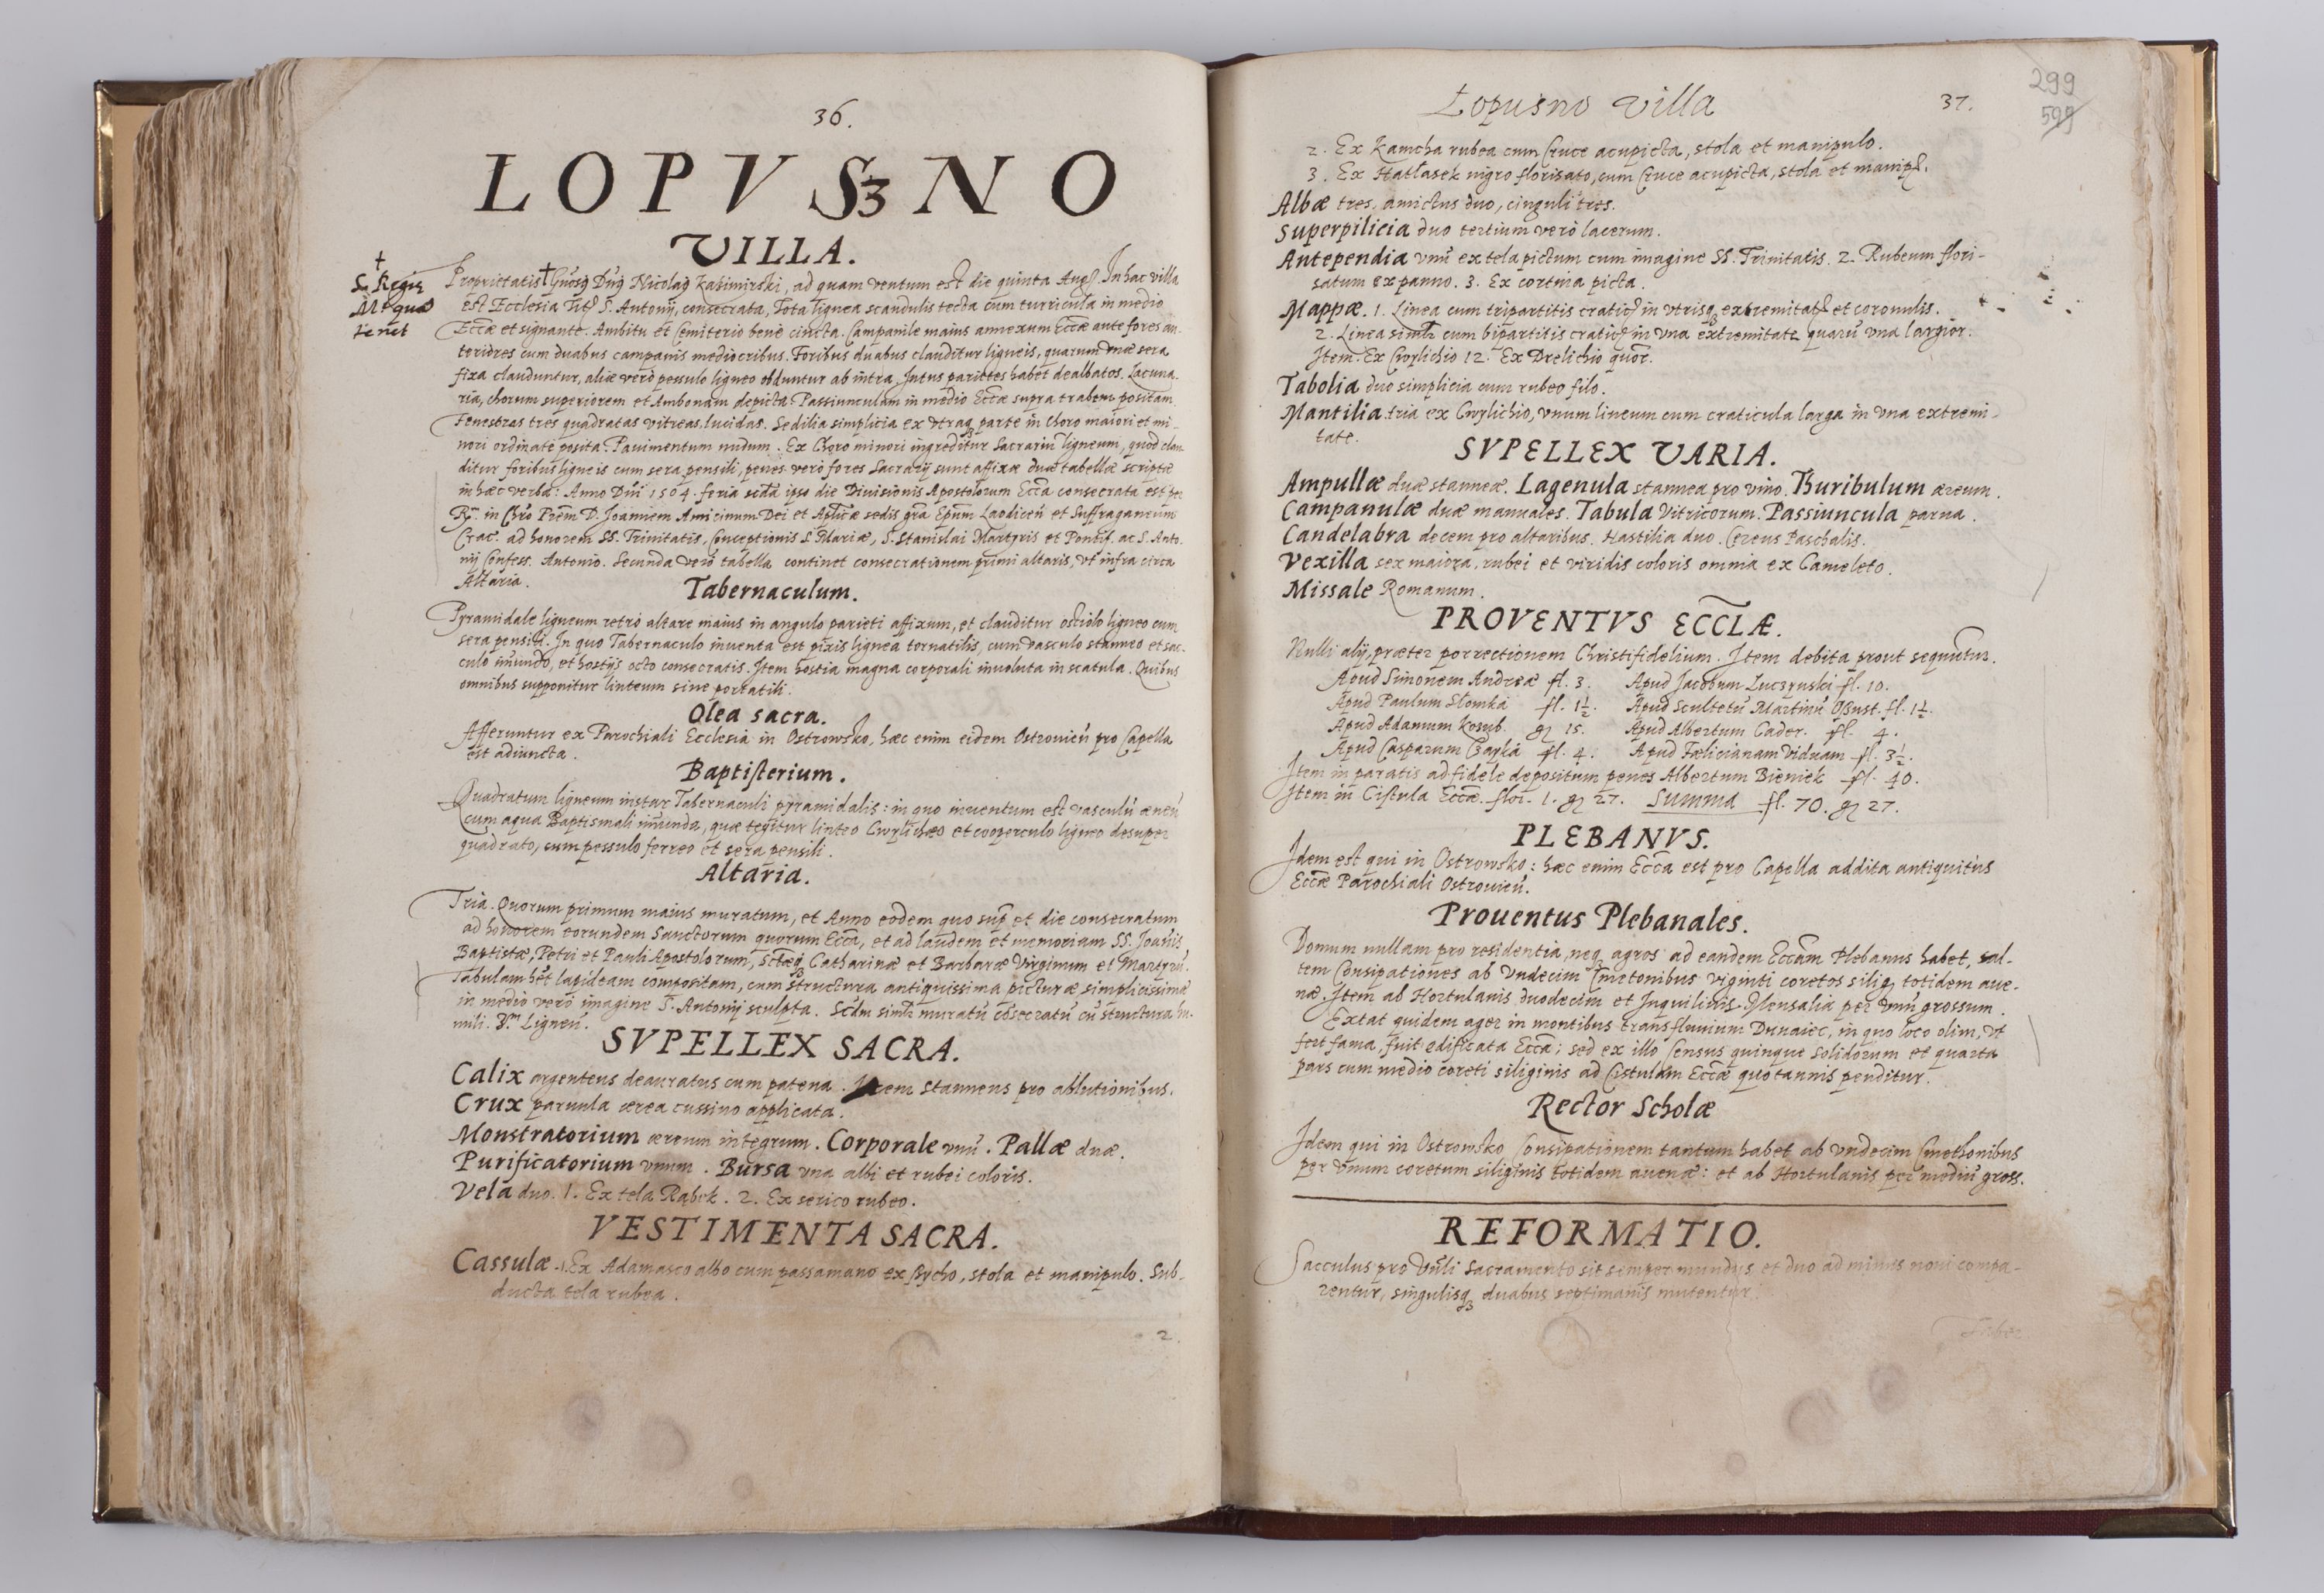 36.
LOPVSZNO
VILLA.
†
S. Regiæ
Mtis quā
tenet
Proprietatis † Gn̄sq Dn̄q Nicolaq Kasimirski, ad quam ventum est die quinta Aug. In hac villa
est Ecclesia tit. S. Antonij, consecrata, tota lignea scandulis tecta cum turricula in medio
Eccæ et signante. Ambitu et Cemiterio benè cincta. Campanile maius annexum Eccæ ante fores an-
teriores cum duabus campanis mediocribus. Foribus duabus clauditur ligneis, quarum unæ sera
fixa clauduntur, aliæ verò pessulo ligneo obduntur ab intra. Intus parietes habet dealbatos. Lacuna-
ria, chorum superiorem et Ambonam depicta. Passiunculam in medio Eccæ supra trabem positam.
Fenestras tres quadratas vitreas, lucidas. Sedilia simplicia ex utraq parte in choro maiori et mi-
nori ordinatè posita. Pauimentum nudum. Ex Choro minori ingreditur Sacrariū ligneum, quod clau-
ditur foribus ligneis cum sera pensili, penes verò fores Sacrarij sunt affixæ duæ tabellæ scriptæ
in hæc verba: Anno Dn̄i 1504. feria scda ipso die Diuisionis Apostolorum Ecca consecrata est per
Rm. in Chro Prem D. Joannem Amicinum Dei et Aplicæ sedis gra Epum Laodiceñ et Suffraganeum
Crac. ad honorem SS. Trinitatis, Conceptionis S. Mariæ, S. Stanislai Martyris et Pontif. ac S. Anto-
nij Confess. Antonio. Secunda verò tabella continet consecrationem primi altaris, vt infra circa
Altaria.
Tabernaculum.
Pyramidale ligneum retrò altare maius in angulo parieti affixum, et clauditur ostiolo ligneo cum
sera pensili. In quo Tabernaculo inuenta est pixis lignea tornatilis, cum vasculo stanneo et sac-
culo mundo, et hostijs octo consecratis. Item hostia magna corporali inuoluta in scatula. Quibus
omnibus supponitur linteum sine portatili.
Olea sacra.
Afferuntur ex Parochiali Ecclesia in Ostrowsko, hæc enim eidem Ostrouieñ pro Capella
est adiuncta.
Baptisterium.
Quadratum ligneum instar Tabernaculi pyramidalis: in quo inuentum est vasculū æneū
cum aqua Baptismali munda, quæ tegitur linteo Cwylichæo et cooperculo ligneo desuper
quadrato, cum pessulo ferreo et sera pensili.
Altaria.
Tria. Quorum primum maius muratum, et Anno eodem quo sup et die consecratum
ad honorem eorundem Sanctorum quorum Ecca, et ad laudem et memoriam SS. Joanis
Baptistæ, Petri et Pauli Apostolorum, Sctæq Catharinæ et Barbaræ Virginum et Martyrū.
Tabulam het lapideam compositam, cum structura antiquissima picturæ simplicissimæ
in medio verò imagine S. Antonij sculpta. Scdm simlr muratū cōsecratū cū structura hu-
mili. 3m Ligneū.
SVPELLEX SACRA.
Calix argenteus deauratus cum patena. Item stanneus pro ablutionibus.
Crux paruula ærea cussino applicata.
Monstratorium æreum integrum. Corporale vnū. Pallæ duæ.
Purificatorium vnum. Bursa vna albi et rubei coloris.
Vela duo. 1. Ex tela Rąbek. 2. Ex serico rubeo.
VESTIMENTA SACRA.
Cassulæ. 1. Ex Adamasco albo cum passamano ex Bycho, stola et manipulo. Sub-
ducta tela rubea.
2.
Łopusno Villa
37.
299
599
2. Ex Kamcha rubea cum Cruce acupicta, stola et manipulo.
3. Ex Hatłasek nigro florisato, cum Cruce acupicta, stola et manip.
Albæ tres, amictus duo, cinguli tres.
Superpilicia duo tertium verò lacerum.
Antependia vnū ex tela pictum cum imagine SS. Trinitatis. 2. Rubeum flori-
satum ex panno. 3. Ex cortina picta.
Mappæ. 1. Linea cum tripartitis cratic in vtrisq extremitat et coronulis.
2. Linea simlr cum bipartitis cratic in vna extremitate quarū vna largior.
Item. Ex Cwylichio 12. Ex Drelichio quor.
Tabolia duo simplicia cum rubeo filo.
Mantilia tria ex Cwylichio, vnum lineum cum craticula larga in vna extremi-
tate.
SVPELLEX VARIA.
Ampullæ duæ stanneæ. Lagenula stannea pro vino. Thuribulum æreum.
Campanulæ duæ manuales. Tabula Vitricorum. Passiuncula parua.
Candelabra decem pro altaribus. Hastilia duo. Cereus Paschalis.
Vexilla sex maiora, rubei et viridis coloris omnia ex Cameleto.
Missale Romanum.
PROVENTVS ECCLÆ.
Nulli alij, præter porrectionem Christifidelium. Item debita prout sequuntur.
Apud Simonem Andreæ fl. 3. Apud Jacobum Luczynski fl. 10.
Apud Paulum Słomka fl. 1½. Apud Scultetū Martinū Gust. fl. 1½.
Apud Adamum Kosub. gr 15. Apud Albertum Cader. fl. 4.
Apud Casparum Czayka fl. 4. Apud Fælicianam Viduam fl. 3½.
Item in paratis ad fidele depositum penes Albertum Bieniek fl. 40.
Item in Cistula Eccæ. flor. 1. gr 27. Summa fl. 70. gr 27.
PLEBANVS.
Idem est qui in Ostrowsko: hæc enim Ecca est pro Capella addita antiquitùs
Eccæ Parochiali Ostrouieñ.
Prouentus Plebanales.
Domum nullam pro residentia, neq agros ad eandem Eccam Plebanus habet, sal-
tem Consipationes ab Vndecim Cmetonibus viginti coretos silig totidem aue-
næ. Item ab Hortulanis duodecim et Inquilinis. Mensalia per vnū grossum.
Extat quidem ager in montibus trans fluuium Dunaiec, in quo loco olim, vt
fert fama, fuit ædificata Ecca; sed ex illo Census quinque solidorum et quarta
pars cum medio coreti siliginis ad Cistulam Eccæ quotannis penditur.
Rector Scholæ
Idem qui in Ostrowsko Consipationem tantum habet ab vndecim Cmethonibus
per vnum coretum siliginis totidem auenæ: et ab Hortulanis per mediū gross.
REFORMATIO.
Sacculus pro Vn̄li Sacramento sit semper mundus et duo ad minus noui compa-
rentur, singulisq duabus septimanis mutentur.